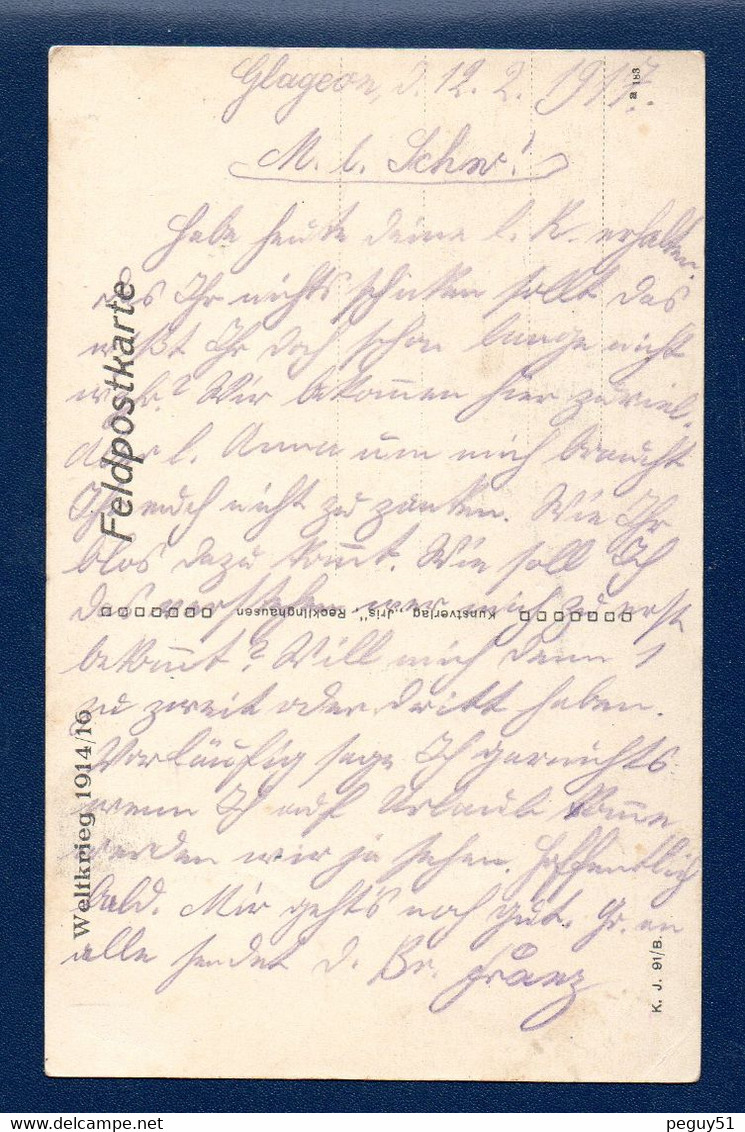 Glageon, d. 12. 2. 1917.
M. l. Schw.!
Habe heute deine l. K. erhalten.
das Ihr nichts schicken sollt das
wißt Ihr doch schon lange nicht
wahr? Wir bekommen hier zuviel.
aber l. Anna um mich braucht
Ihr euch nicht zu zanken. Wie Ihr
blos dazu kommt. Wie soll Ich
das verstehen wer mich zu erst
bekommt? Will mich denn 1
zu zweit oder dritt haben.
Vorläufig sage Ich garnichts
wenn Ich auf Urlaub komme
werden wir ja sehen. Hoffentlich
bald. Mir geht's noch gut. Gr. an
alle sendet d. Br. Franz
Feldpostkarte
Weltkrieg 1914/16
Kunstverlag „Jris", Recklinghausen
a 183
K. J. 91/B.
peguy51